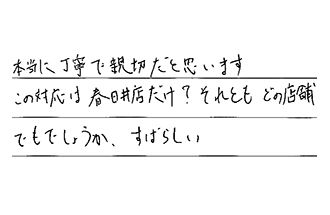 本当に丁寧で親切だと思います
この対応は春日井店だけ？それとも どの店舗
でもでしょうか、すばらしい